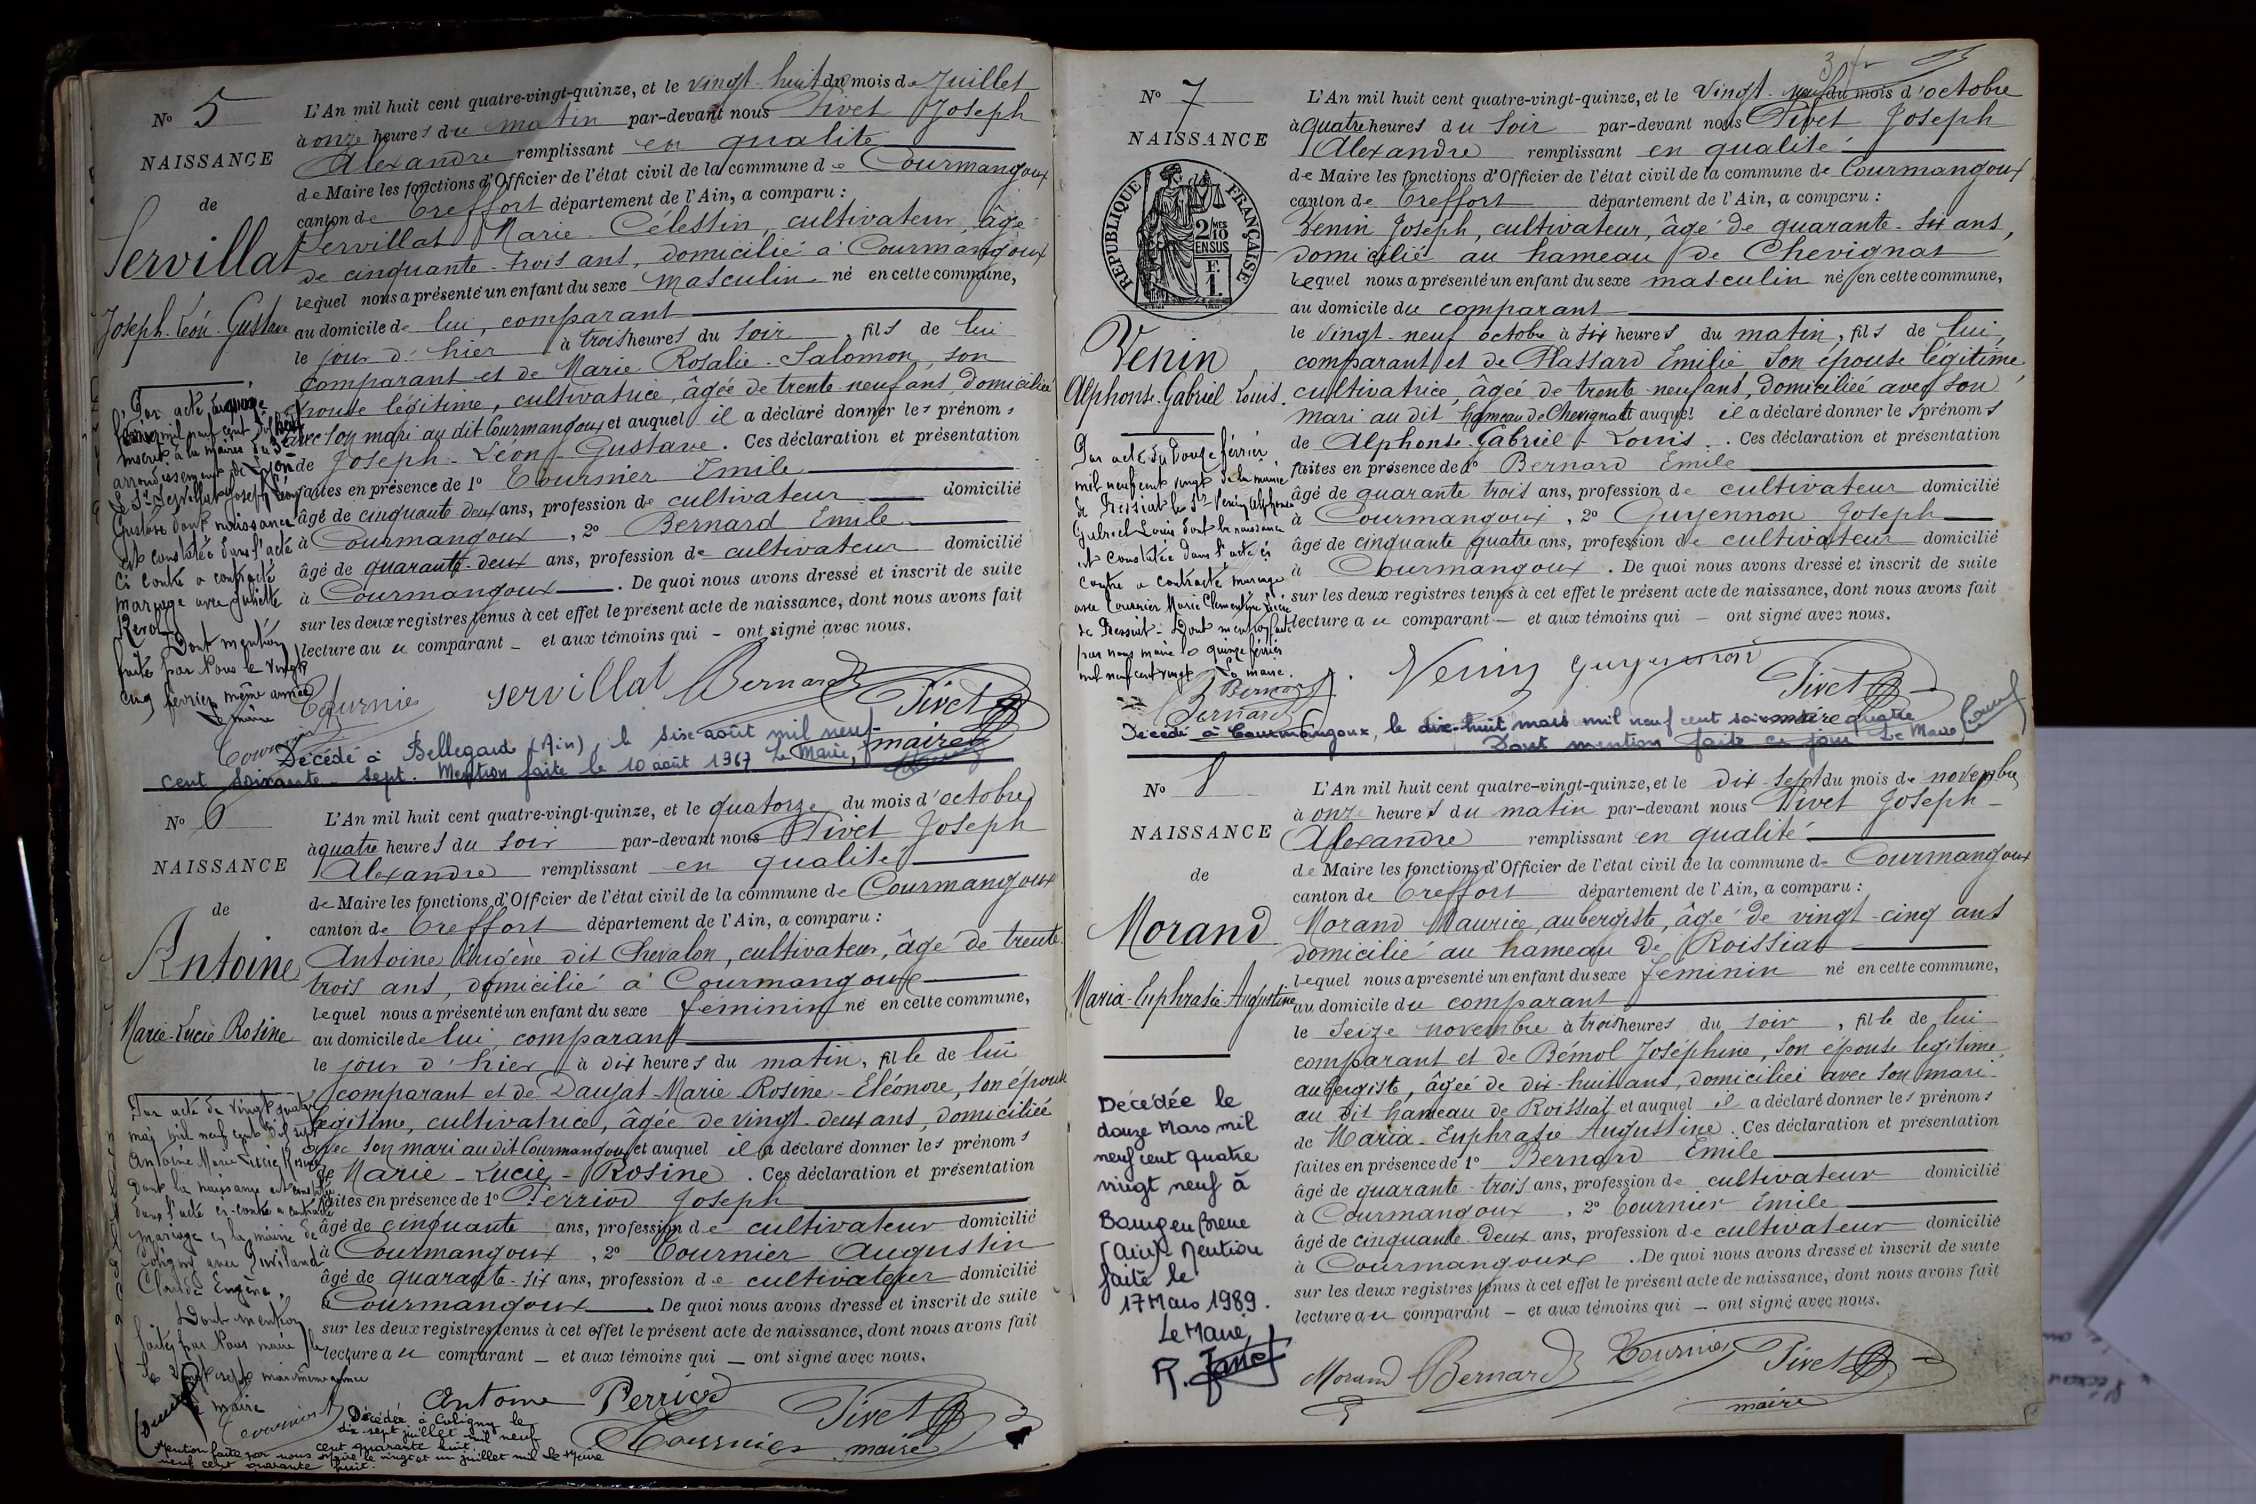 N° 5
NAISSANCE
de
Servillat
Joseph-Léon-Gustave
L'An mil huit cent quatre-vingt-quinze, et le vingt-huit du mois de Juillet
à onze heures du matin par-devant nous Pivet Joseph
Alexandre remplissant en qualité
de Maire les fonctions d'Officier de l'état civil de la commune de Courmangoux
canton de Treffort département de l'Ain, a comparu :
Servillat Marie Célestin, cultivateur, âgé
de cinquante-trois ans, domicilié à Courmangoux
lequel nous a présenté un enfant du sexe masculin né en cette commune,
au domicile de lui, comparant
le jour d'hier à trois heures du soir, fils de lui
comparant et de Marie Rosalie Salomon, son
épouse légitime, cultivatrice, âgée de trente-neuf ans, domiciliée
avec son mari au dit Courmangoux et auquel il a déclaré donner les prénoms
de Joseph-Léon-Gustave. Ces déclaration et présentation
faites en présence de 1° Tournier Emile
âgé de cinquante deux ans, profession de cultivateur domicilié
à Courmangoux, 2° Bernard Emile
âgé de quarante-deux ans, profession de cultivateur domicilié
à Courmangoux. De quoi nous avons dressé et inscrit de suite
sur les deux registres tenus à cet effet le présent acte de naissance, dont nous avons fait
lecture au comparant et aux témoins qui ont signé avec nous.
Par acte du
mil neuf cent dix huit
inscrit à la mairie du 3e
arrondissement de Lyon
le Sr Servillat Joseph Léon
Gustave dont naissance
est constatée dans l'acte
ci contre a contracté
mariage avec Juliette
Dont mention
faite par Nous le vingt
cinq février même année
Le maire
Tournier Servillat Bernard Pivet
maire
Décédé à Bellegarde (Ain), le six août mil neuf
cent soixante-sept. Mention faite le 10 août 1967 Le Maire,
N° 6
NAISSANCE
de
Antoine
Marie-Lucie-Rosine
L'An mil huit cent quatre-vingt-quinze, et le quatorze du mois d'octobre
à quatre heures du soir par-devant nous Pivet Joseph
Alexandre remplissant en qualité
de Maire les fonctions d'Officier de l'état civil de la commune de Courmangoux
canton de Treffort département de l'Ain, a comparu :
Antoine Eugène dit Chevalon, cultivateur, âgé de trente
trois ans, domicilié à Courmangoux
lequel nous a présenté un enfant du sexe féminin né en cette commune,
au domicile de lui, comparant
le jour d'hier à dix heures du matin, fille de lui
comparant et de Daujat Marie-Rosine-Eléonore, son épouse
légitime, cultivatrice, âgée de vingt-deux ans, domiciliée
avec son mari au dit Courmangoux et auquel il a déclaré donner les prénoms
de Marie-Lucie-Rosine. Ces déclaration et présentation
faites en présence de 1° Perriod Joseph
âgé de cinquante ans, profession de cultivateur domicilié
à Courmangoux, 2° Tournier Augustin
âgé de quarante-six ans, profession de cultivateur domicilié
à Courmangoux. De quoi nous avons dressé et inscrit de suite
sur les deux registres tenus à cet effet le présent acte de naissance, dont nous avons fait
lecture au comparant et aux témoins qui ont signé avec nous.
Par acte de vingt quatre
mai mil neuf cent dix sept
Antoine Marie Lucie Rosine
dont la naissance est constatée
dans l'acte ci-contre a contracté
mariage à la mairie de
Coligny avec
Claude Eugène.
Dont mention
faite par Nous maire
le vingt sept mai même année
Le maire
Antoine Perriod Pivet
Tournier maire
Décédée à Coligny le
dix-sept juillet mil neuf
cent quarante huit.
Mention faite par nous Maire le vingt et un juillet mil
neuf cent quarante huit. Le Maire
N° 7
NAISSANCE
RÉPUBLIQUE FRANÇAISE
2/10 MES
EN SUS
F.
1.
Venin
Alphonse-Gabriel-Louis.
L'An mil huit cent quatre-vingt-quinze, et le Vingt-neuf du mois d'octobre
à quatre heures du soir par-devant nous Pivet Joseph
Alexandre remplissant en qualité
de Maire les fonctions d'Officier de l'état civil de la commune de Courmangoux
canton de Treffort département de l'Ain, a comparu :
Venin Joseph, cultivateur, âgé de quarante-six ans,
domicilié au hameau de Chevignat
lequel nous a présenté un enfant du sexe masculin né en cette commune,
au domicile du comparant
le vingt-neuf octobre à six heures du matin, fils de lui,
comparant et de Plassard Emilie, son épouse légitime,
cultivatrice, âgée de trente-neuf ans, domiciliée avec son
mari au dit hameau de Chevignat et auquel il a déclaré donner les prénoms
de Alphonse-Gabriel-Louis. Ces déclaration et présentation
faites en présence de 1° Bernard Emile
âgé de quarante trois ans, profession de cultivateur domicilié
à Courmangoux, 2° Guyennon Joseph
âgé de cinquante quatre ans, profession de cultivateur domicilié
à Courmangoux. De quoi nous avons dressé et inscrit de suite
sur les deux registres tenus à cet effet le présent acte de naissance, dont nous avons fait
lecture au comparant et aux témoins qui ont signé avec nous.
Par acte du douze février
mil neuf cent vingt de la mairie
de Pressiat le Sr Venin Alphonse
Gabriel Louis dont la naissance
est constatée dans l'acte ci
contre a contracté mariage
avec Tournier Marie Clémentine
de Pressiat. Dont mention faite
par nous maire le quinze février
mil neuf cent vingt Le maire.
Bernard Venin Guyennon Pivet
Décédé à Courmangoux, le dix-huit mars mil neuf cent soixante quatre
Dont mention faite ce jour Le Maire,
N° 8
NAISSANCE
de
Morand
Maria-Euphrasie-Augustine
L'An mil huit cent quatre-vingt-quinze, et le dix-sept du mois de novembre
à onze heures du matin par-devant nous Pivet Joseph
Alexandre remplissant en qualité
de Maire les fonctions d'Officier de l'état civil de la commune de Courmangoux
canton de Treffort département de l'Ain, a comparu :
Morand Maurice, aubergiste, âgé de vingt-cinq ans
domicilié au hameau de Roissiat
lequel nous a présenté un enfant du sexe féminin né en cette commune,
au domicile du comparant
le seize novembre à trois heures du soir, fille de lui
comparant et de Bémol Joséphine, son épouse légitime,
aubergiste, âgée de dix-huit ans, domiciliée avec son mari
au dit hameau de Roissiat et auquel il a déclaré donner les prénoms
de Maria-Euphrasie Augustine. Ces déclaration et présentation
faites en présence de 1° Bernard Emile
âgé de quarante-trois ans, profession de cultivateur domicilié
à Courmangoux, 2° Tournier Emile
âgé de cinquante-deux ans, profession de cultivateur domicilié
à Courmangoux. De quoi nous avons dressé et inscrit de suite
sur les deux registres tenus à cet effet le présent acte de naissance, dont nous avons fait
lecture au comparant et aux témoins qui ont signé avec nous.
Décédée le
douze Mars mil
neuf cent quatre
vingt neuf à
Bourg en Bresse
(Ain). Mention
faite le
17 Mars 1989.
Le Maire,
Morand Bernard Tournier Pivet
maire